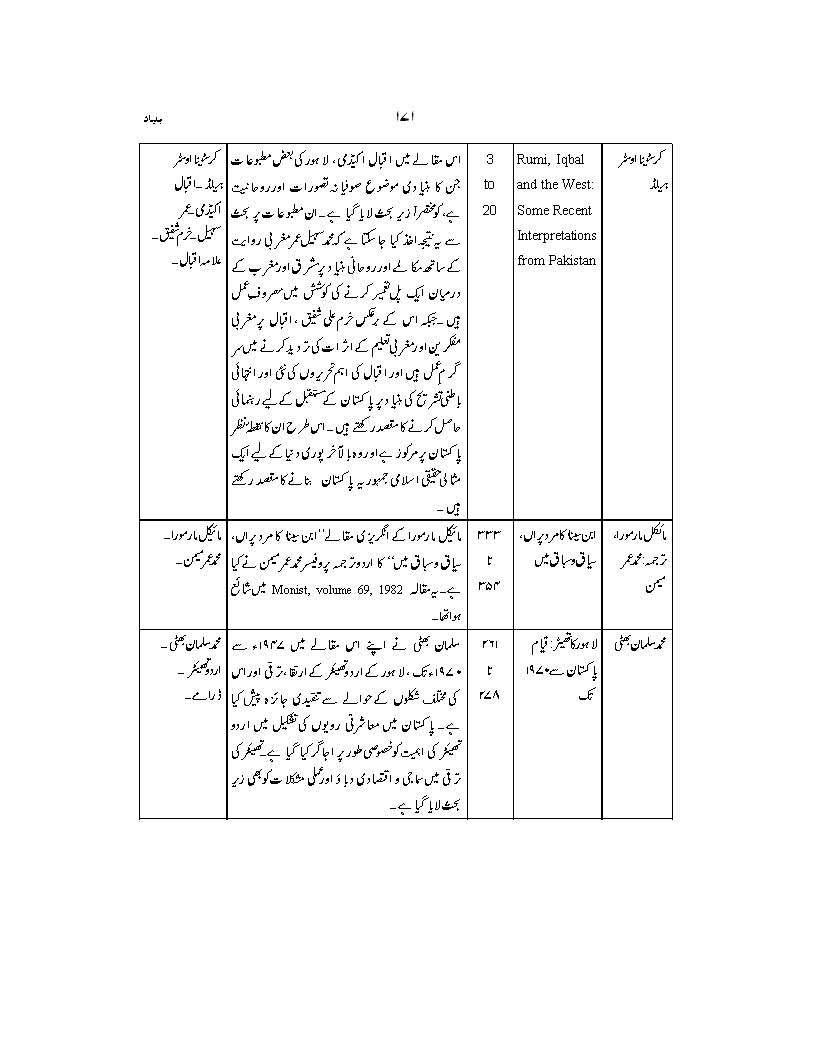 ۱۷۱
بنیاد
کرسٹینا اوسٹر
ہیلڈ
Rumi, Iqbal
and the West:
Some Recent
Interpretations
from Pakistan
3
to
20
اس مقالے میں اقبال اکیڈمی، لاہور کی بعض مطبوعات
جن کا بنیادی موضوع صوفیانہ تصورات اور روحانیت
ہے، کو مختصراً زیر بحث لایا گیا ہے۔ ان مطبوعات پر بحث
سے یہ نتیجہ اخذ کیا جا سکتا ہے کہ محمد سہیل عمر مغربی روایت
کے ساتھ مکالمے اور روحانی بنیاد پر مشرق اور مغرب کے
درمیان ایک پل تعمیر کرنے کی کوشش میں مصروفِ عمل
ہیں۔ جبکہ اس کے برعکس خرم علی شفیق، اقبال پر مغربی
مفکرین اور مغربی تعلیم کے اثرات کی تردید کرنے میں سر
گرمِ عمل ہیں اور اقبال کی اہم تحریروں کی نئی اور انتہائی
باطنی تشریح کی بنیاد پر پاکستان کے مستقبل کے لیے رہنمائی
حاصل کرنے کا مقصد رکھتے ہیں۔ اس طرح ان کا نقطۂ نظر
پاکستان پر مرکوز ہے اور وہ بالآخر پوری دنیا کے لیے ایک
مثالی حقیقی اسلامی جمہوریہ پاکستان بنانے کا مقصد رکھتے
ہیں۔
کرسٹینا اوسٹر
ہیلڈ۔ اقبال
اکیڈمی۔ عمر
سہیل۔ خرم شفیق۔
علامہ اقبال۔
مائیکل مارمورا،
ترجمہ: محمد عمر
میمن
ابن سینا کا مردِ پراں،
سیاق و سباق میں
۳۳۳
تا
۳۵۴
مائیکل مارمورا کے انگریزی مقالے ’’ابن سینا کا مردِ پراں،
سیاق و سباق میں‘‘ کا اردو ترجمہ پروفیسر محمد عمر میمن نے کیا
ہے۔ یہ مقالہ Monist, volume 69, 1982 میں شائع
ہوا تھا۔
مائیکل مارمورا۔
محمد عمر میمن۔
محمد سلمان بھٹی
لاہور کا تھیٹر: قیام
پاکستان سے ۱۹۷۰
تک
۲۶۱
تا
۲۷۸
سلمان بھٹی نے اپنے اس مقالے میں ۱۹۴۷ء سے
۱۹۷۰ء تک، لاہور کے اردو تھیٹر کے ارتقا، ترقی اور اس
کی مختلف شکلوں کے حوالے سے تنقیدی جائزہ پیش کیا
ہے۔ پاکستان میں معاشرتی رویوں کی تشکیل میں اردو
تھیٹر کی اہمیت کو خصوصی طور پر اجاگر کیا گیا ہے۔ تھیٹر کی
ترقی میں سماجی و اقتصادی دباؤ اور عملی مشکلات کو بھی زیر
بحث لایا گیا ہے۔
محمد سلمان بھٹی۔
اردو تھیٹر۔
ڈرامے۔